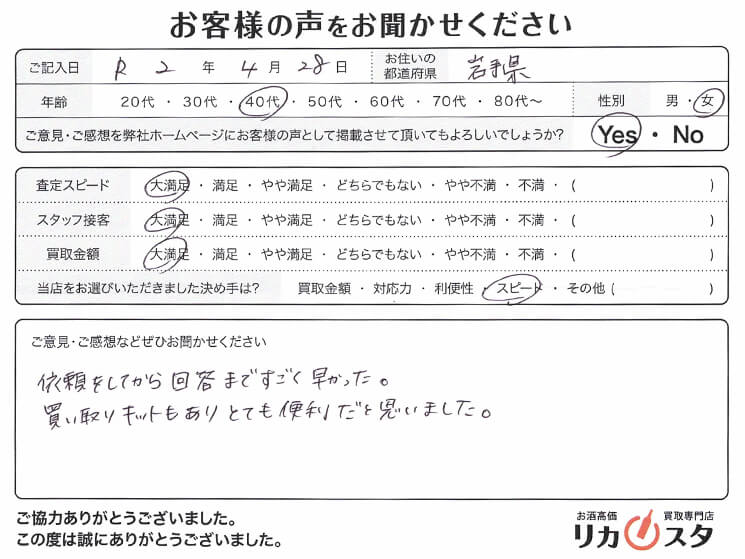 お客様の声をお聞かせください
ご記入日 R 2 年 4 月 28 日 お住いの都道府県 岩手県
年齢 20代 ・ 30代 ・ 40代 ・ 50代 ・ 60代 ・ 70代 ・ 80代〜 性別 男 ・ 女
ご意見・ご感想を弊社ホームページにお客様の声として掲載させて頂いてもよろしいでしょうか? Yes ・ No
査定スピード 大満足 ・ 満足 ・ やや満足 ・ どちらでもない ・ やや不満 ・ 不満 ・ ( )
スタッフ接客 大満足 ・ 満足 ・ やや満足 ・ どちらでもない ・ やや不満 ・ 不満 ・ ( )
買取金額 大満足 ・ 満足 ・ やや満足 ・ どちらでもない ・ やや不満 ・ 不満 ・ ( )
当店をお選びいただきました決め手は? 買取金額 ・ 対応力 ・ 利便性 ・ スピード ・ その他 ( )
ご意見・ご感想などぜひお聞かせください
依頼をしてから回答まですごく早かった。
買い取りキットもありとても便利だと思いました。
ご協力ありがとうございました。
この度は誠にありがとうございました。
お酒高価 買取専門店
リカスタ